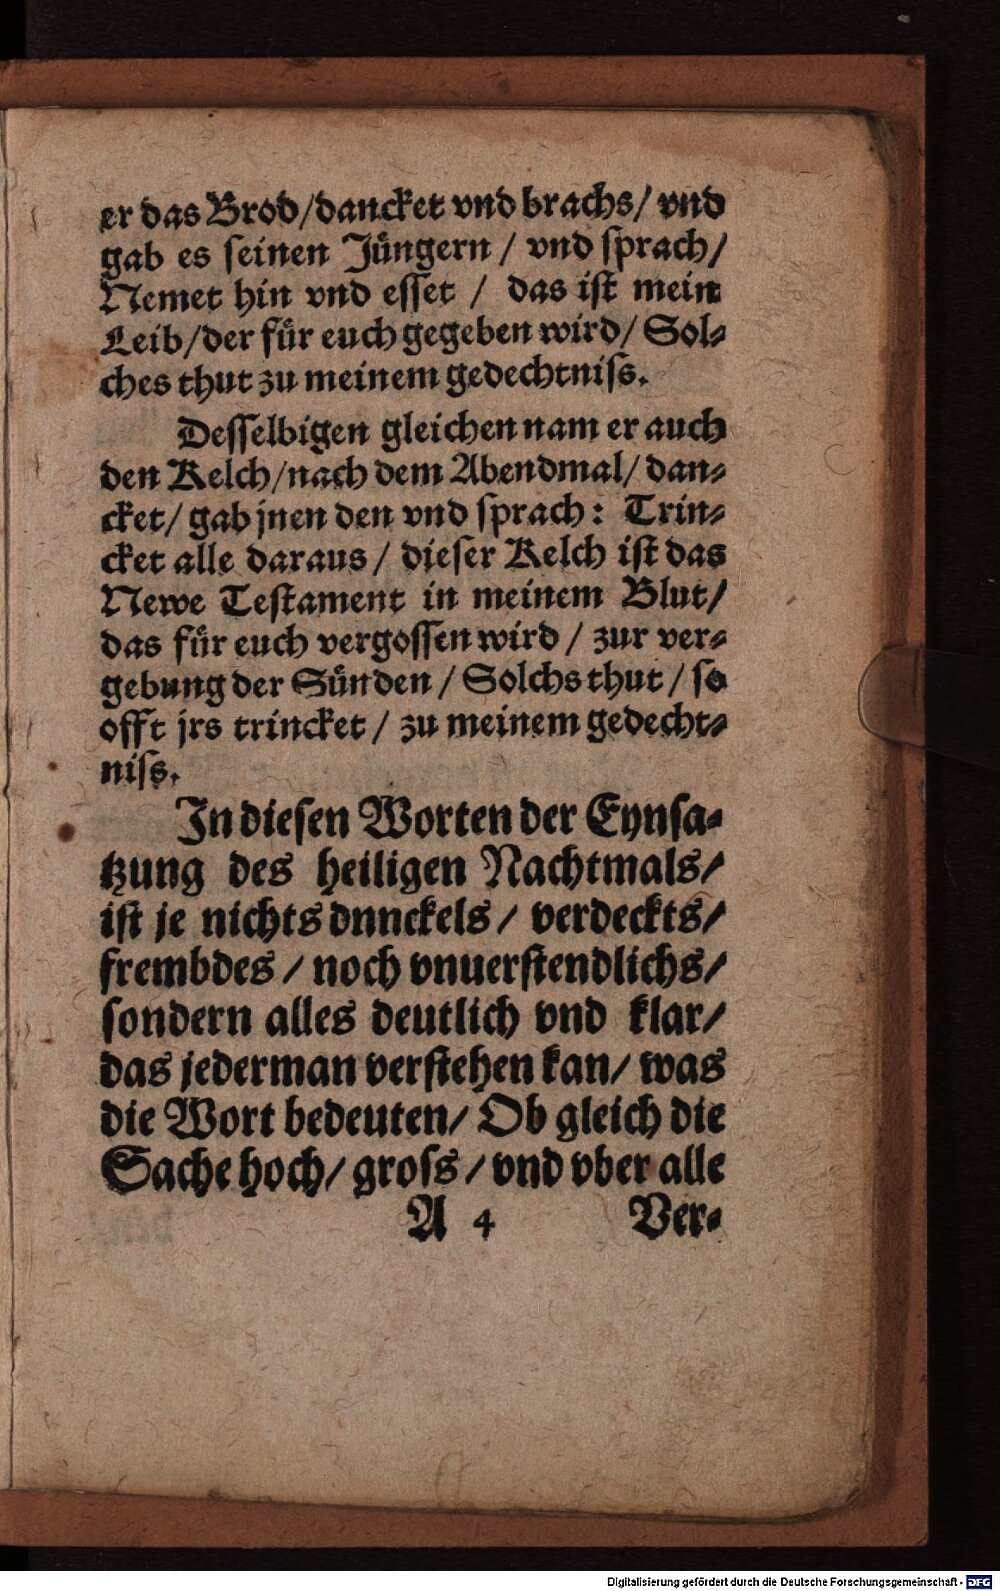 er das Brod/dancket vnd brachs/ vnd
gab es seinen Jüngern / vnd sprach/
Nemet hin vnd esset / das ist mein
Leib/der für euch gegeben wird/ Sol-
ches thut zu meinem gedechtniss.
Desselbigen gleichen nam er auch
den Kelch/nach dem Abendmal/ dan-
cket/ gab jnen den vnd sprach: Trin-
cket alle daraus / dieser Kelch ist das
Newe Testament in meinem Blut/
das für euch vergossen wird / zur ver-
gebung der Sünden / Solchs thut / so
offt jrs trincket / zu meinem gedecht-
niss.
In diesen Worten der Eynsa-
tzung des heiligen Nachtmals/
ist je nichts dnnckels / verdeckts/
frembdes / noch vnuerstendlichs/
sondern alles deutlich vnd klar/
das jederman verstehen kan/ was
die Wort bedeuten/ Ob gleich die
Sache hoch/ gross / vnd vber alle
A 4 Ver-
Digitalisierung gefördert durch die Deutsche Forschungsgemeinschaft - DFG